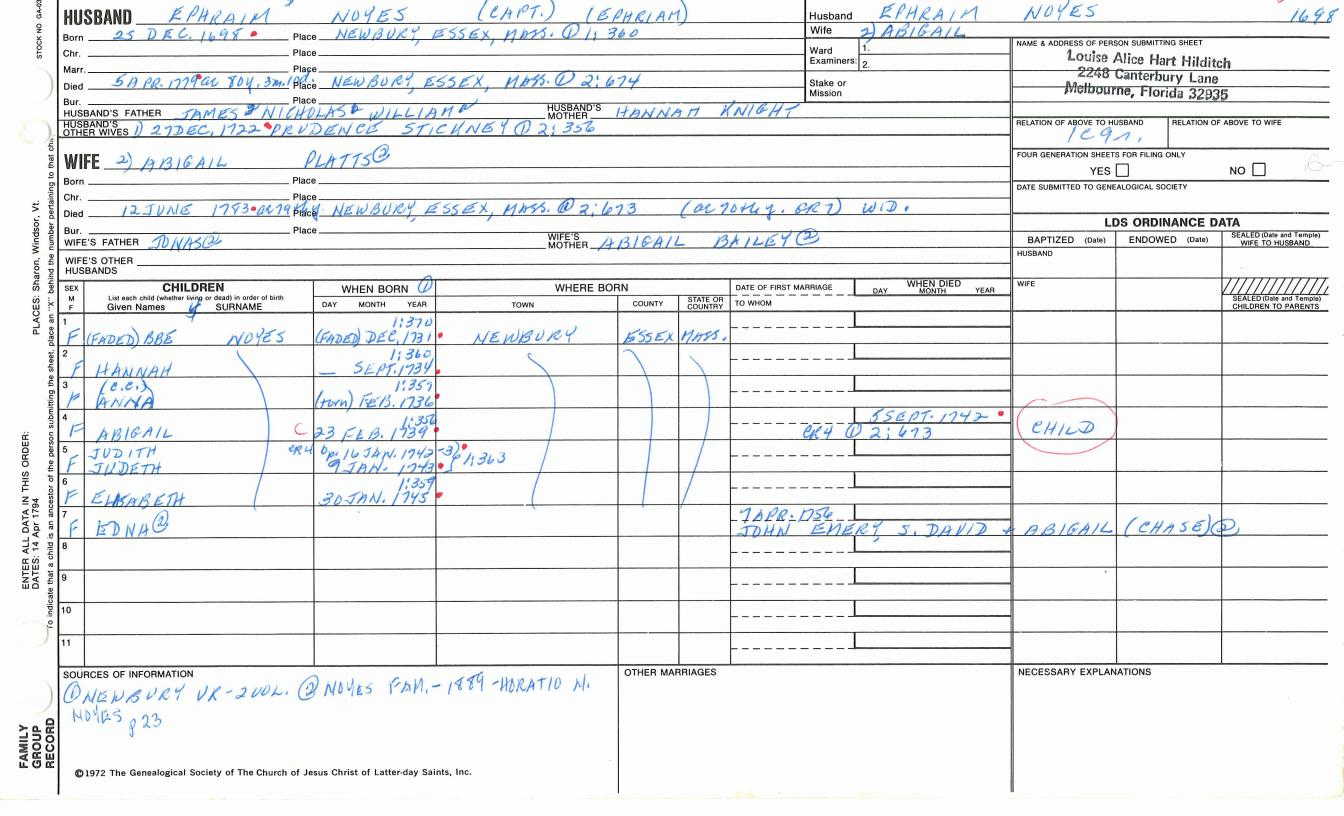 STOCK NO. GA-02
HUSBAND EPHRAIM NOYES (CAPT.) (EPHRIAM)
Born 25 DEC. 1698 Place NEWBURY, ESSEX, MASS. ① 1; 360
Chr. Place
Marr. Place
Died 5 APR. 1779 ae 80y. 3m. Place NEWBURY, ESSEX, MASS. ① 2; 674
Bur. Place
HUSBAND'S FATHER JAMES NICHOLAS WILLIAM HUSBAND'S MOTHER HANNAH KNIGHT
HUSBAND'S OTHER WIVES 1) 27 DEC, 1722 PRUDENCE STICKNEY ① 2; 356
WIFE 2) ABIGAIL PLATTS ②
Born Place
Chr. Place
Died 12 JUNE 1783 ae 79 Place NEWBURY, ESSEX, MASS. ① 2; 673 WID.
Bur. Place
WIFE'S FATHER JONAS ② WIFE'S MOTHER ABIGAIL BAILEY ②
WIFE'S OTHER HUSBANDS
Husband EPHRAIM NOYES 1698
Wife 2) ABIGAIL
Ward Examiners: 1.
2.
Stake or Mission
NAME & ADDRESS OF PERSON SUBMITTING SHEET
Louise Alice Hart Hilditch
2248 Canterbury Lane
Melbourne, Florida 32935
RELATION OF ABOVE TO HUSBAND RELATION OF ABOVE TO WIFE
FOUR GENERATION SHEETS FOR FILING ONLY
YES NO
DATE SUBMITTED TO GENEALOGICAL SOCIETY
LDS ORDINANCE DATA
BAPTIZED (Date) ENDOWED (Date) SEALED (Date and Temple) WIFE TO HUSBAND
HUSBAND
WIFE
SEALED (Date and Temple) CHILDREN TO PARENTS
SEX M F CHILDREN WHEN BORN ① WHERE BORN DATE OF FIRST MARRIAGE WHEN DIED
List each child (whether living or dead) in order of birth
Given Names SURNAME DAY MONTH YEAR TOWN COUNTY STATE OR COUNTRY TO WHOM DAY MONTH YEAR
1 1:370
F (FADED) BBE NOYES (FADED) DEC, 1731 NEWBURY ESSEX MASS.
2 1:360
F HANNAH — SEPT. 1734
3 (C.C.) 1:359
F ANNA (torn) FEB. 1736
4 1:356 5 SEPT. 1742
F ABIGAIL C 23 FEB. 1739 CR4 ① 2; 673 CHILD
5 JUDITH CR4 bp. 16 JAN. 1742-3
F JUDETH 9 JAN. 1743 1:363
6 1:359
F ELISABETH 30 JAN. 1745
7 7 APR. 1756
F EDNA ② JOHN EMERY, S. DAVID + ABIGAIL (CHASE) ②
8
9
10
11
SOURCES OF INFORMATION OTHER MARRIAGES NECESSARY EXPLANATIONS
① NEWBURY VR - 2 VOL. ② NOYES FAM. - 1889 - HORATIO N.
NOYES p 23
©1972 The Genealogical Society of The Church of Jesus Christ of Latter-day Saints, Inc.
PLACES: Sharon, Windsor, Vt.
ENTER ALL DATA IN THIS ORDER:
DATES: 14 Apr 1794
To indicate that a child is an ancestor of the person submitting the sheet, place an "X" behind the number pertaining to that
FAMILY GROUP RECORD